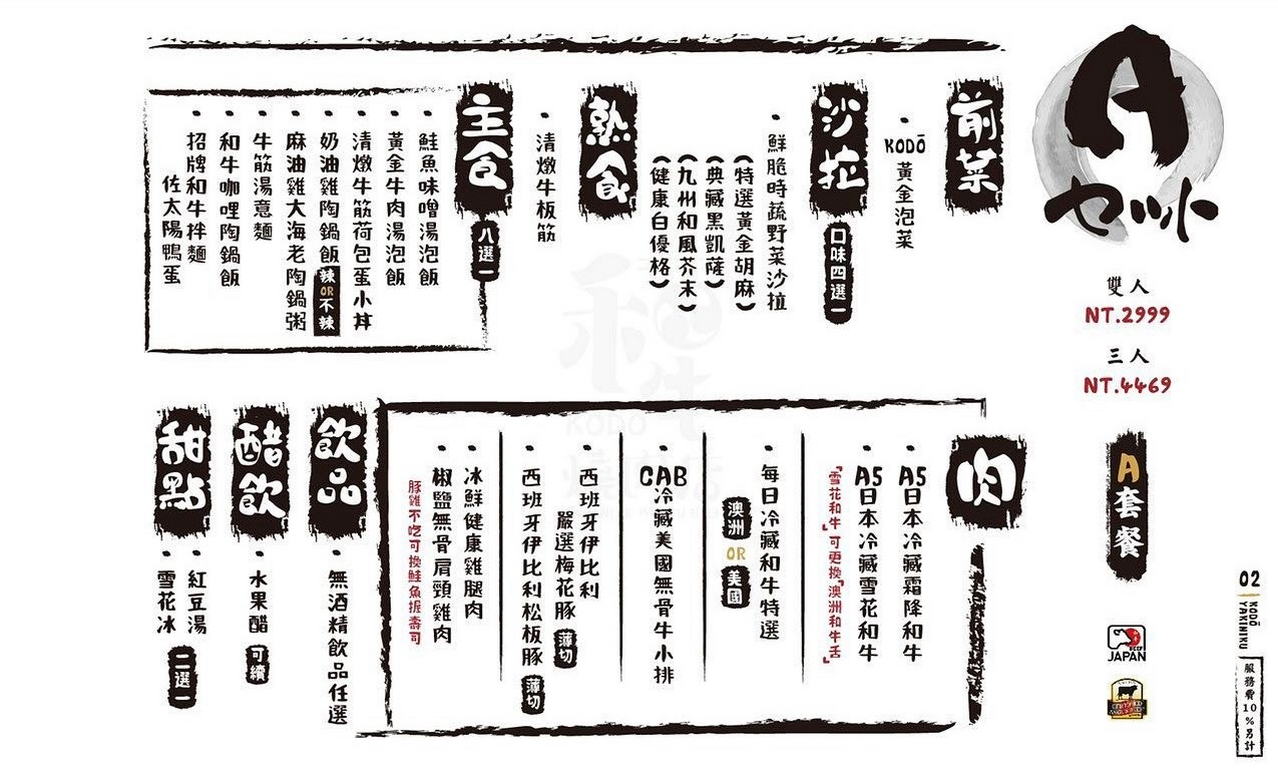 A
セット
雙人
NT.2999
三人
NT.4469
A套餐
JAPAN
前菜
KODŌ黃金泡菜
沙拉
口味四選一
鮮脆時蔬野菜沙拉
(特選黃金胡麻)
(典藏黑凱薩)
(九州和風芥末)
(健康白優格)
熟食
清燉牛板筋
主食
八選一
鮭魚味噌湯泡飯
黃金牛肉湯泡飯
清燉牛筋荷包蛋小丼
奶油雞陶鍋飯 辣OR不辣
麻油雞大海老陶鍋粥
牛筋湯意麵
和牛咖哩陶鍋飯
招牌和牛拌麵
佐太陽鴨蛋
肉
A5日本冷藏霜降和牛
A5日本冷藏雪花和牛
「雪花和牛」可更換「澳洲和牛舌」
每日冷藏和牛特選
澳洲OR美國
CAB冷藏美國無骨牛小排
西班牙伊比利
嚴選梅花豚 薄切
西班牙伊比利松板豚 薄切
冰鮮健康雞腿肉
椒鹽無骨肩頸雞肉
豚雞不吃可換鮭魚握壽司
飲品
無酒精飲品任選
醋飲
水果醋 可續
甜點
紅豆湯
雪花冰
二選一
02
KODŌ
YAKINIKU
服務費10%另計